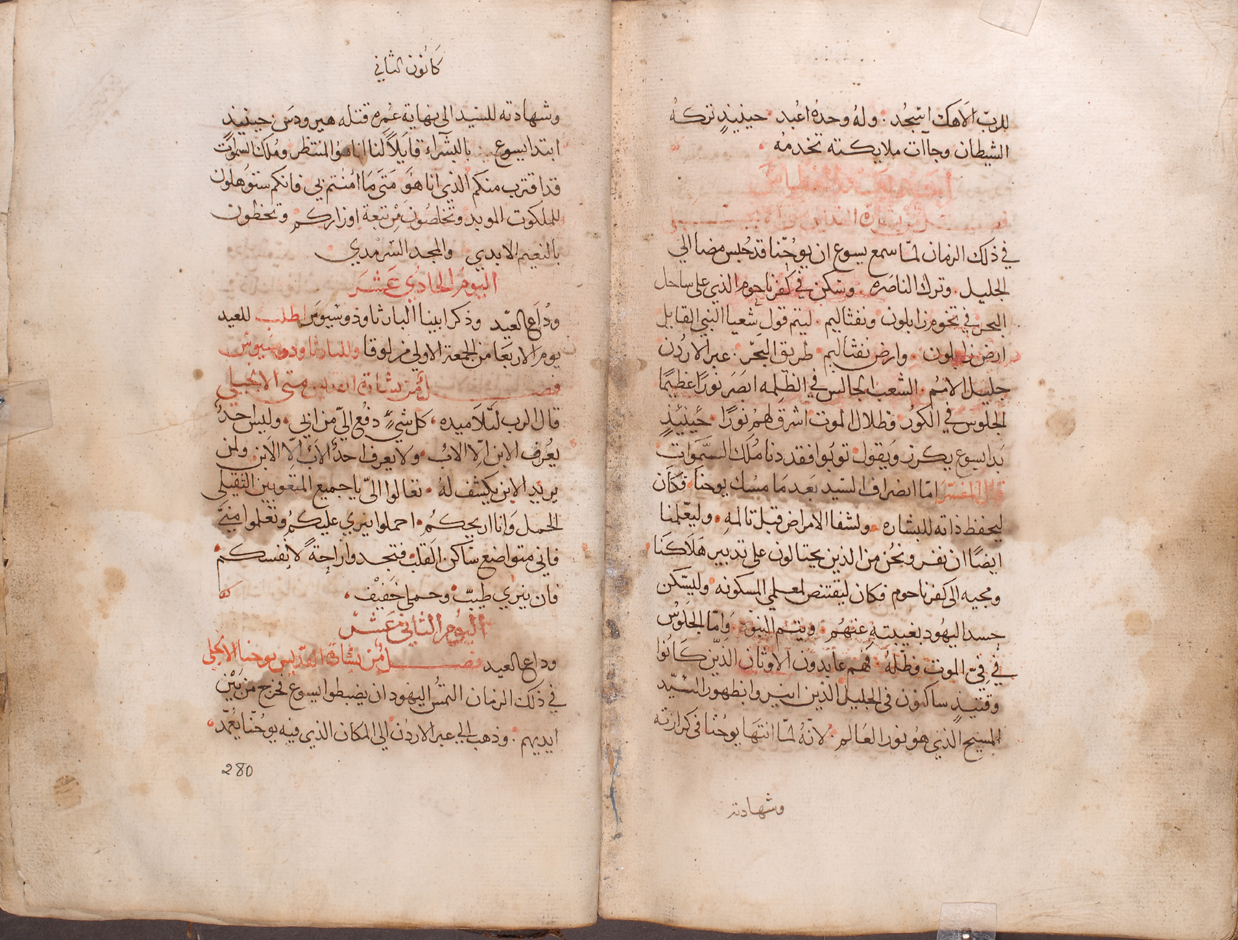 للرب الاهك اسجد · وله وحده اعبد · حينيذٍ تركه
الشيطان وجاآت ملايكته تخدمه ·
في ذلك الزمان لما سمع يسوع ان يوحنا قد حبس مضا الي
الجليل · وترك الناصره · وسكن في كفرناحوم الذي علي ساحل
البحر في تخوم زابلون ونفتاليم · ليتم قول شعيا النبي القايل
ارض زابلون · وارض نفتاليم · طريق البحر · عبر الاردن
جليل الامم · الشعب الجالس في الظلمه ابصر نورًا عظيمًا
الجلوس في الكور وظلال الموت اشرق لهم نورًا · حينيذٍ
بدا يسوع يكرز ويقول توبوا فقد دنا ملك السموات
قال المفسر اما انصراف السيد بعد ما مسك يوحنا فكان
ليحفظ ذاته للبشاره · ولشفا الامراض قبل تالمه · وليعلمنا
ايضًا ان نفر ونحن من الذين يحتالون علي تدبير هلاكنا
ومجيه الي كفرناحوم فكان ليقتنص لمعلمي المسكونه وليسكن
حسد اليهود بغيبته عنهم · ويتمم النبوه · واما الجلوس
في في الموت وظله · فهم عابدون الاوثان الذين كانوا
وقتيذٍ ساكنون في الجليل الذين انيروا بظهور السيد
المسيح الذي هو نور العالم · لانه لما انتها يوحنا في كرازته
وشهادته
كانون الثاني
وشهادته للسيد الي نهاية عمره قتله هيرودس حينيذ
ابتدا يسوع · بالبشراء قايلاً لنا انا هو المنتظر وملك السموات
قد اقترب منكم الذي انا هو متي ما امنتم بي فانكم ستوهلون
للملكوت الموبد وتخلصون من تبعة اوزاركم وتحظون
بالنعيم الابدي والمجد السرمدي
اليوم الحادي عشر
وداع العيد وذكر ابينا البار ثاوذوسيوس اطلب للعيد
يوم الاربعا من الجمعة الاولي من لوقا وللبار ثاودوسيوس
فصل من بشارة القديس متي الانجيلي
قال الرب لتلاميده · كل شيٍ دفع الي من ابي · وليس احدٌ
يعرف الابن الا الاب · ولا يعرف احدٌ الاب الا الابن ولمن
يريد الابن يكشف له · تعالوا الي يا جميع المتعوبين الثقيلي
الحمل وانا اريحكم · احملوا نيري عليكم وتعلموا مني
فاني متواضع ساكن القلب فتجدوا راحةً لانفسكم
فان نيري طيب وحملي خفيف ·
اليوم الثاني عشر
وداع العيد فصل من بشارة القديس يوحنا
في ذلك الزمان التمس اليهود ان يضبطوا يسوع فخرج من بين
ايديهم · وذهب الي عبر الاردن الي المكان الذي فيه يوحنا يعمد
280